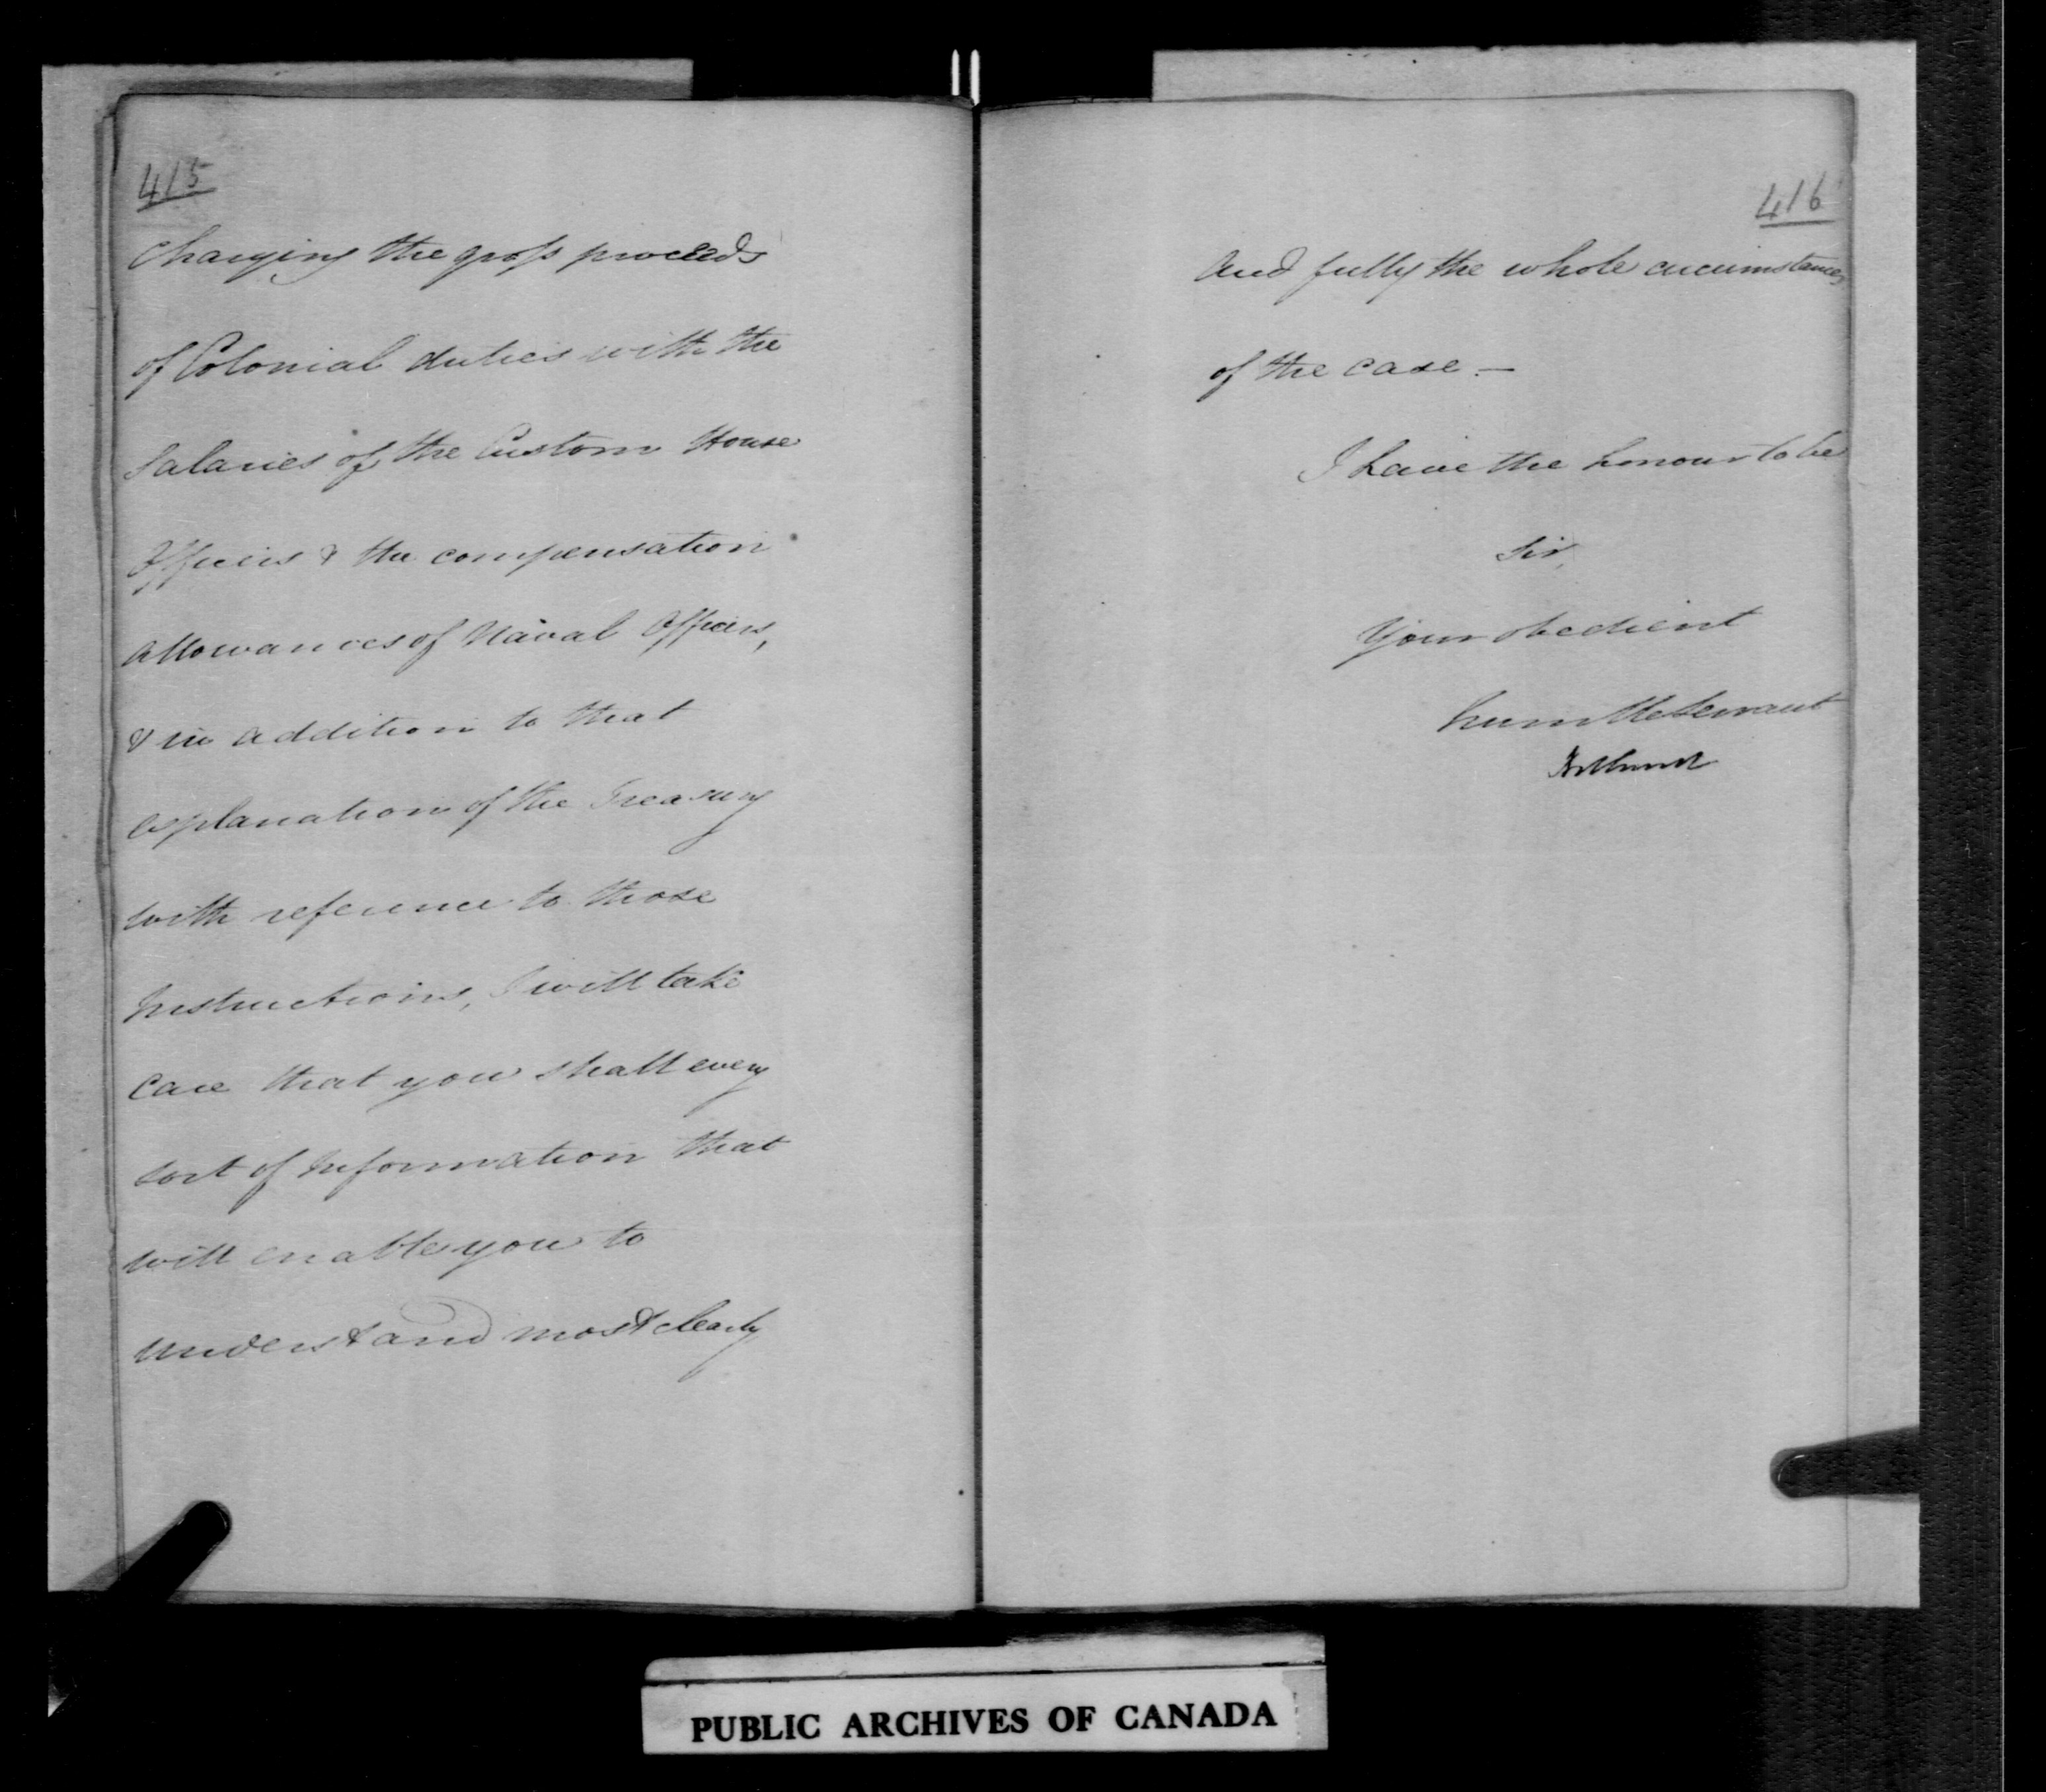 415
charging the gross proceeds
of Colonial duties with the
Salaries of the Custom House
Officers & the compensation
allowances of Naval Officers,
& in addition to that
explanation of the Treasury
with reference to those
Instructions, I will take
care that you shall every
sort of information that
will enable you to
understand most clearly
416
and fully the whole circumstances
of the case. —
I have the honour to be
Sir,
Your obedient
humble Servant
Bathurst
PUBLIC ARCHIVES OF CANADA